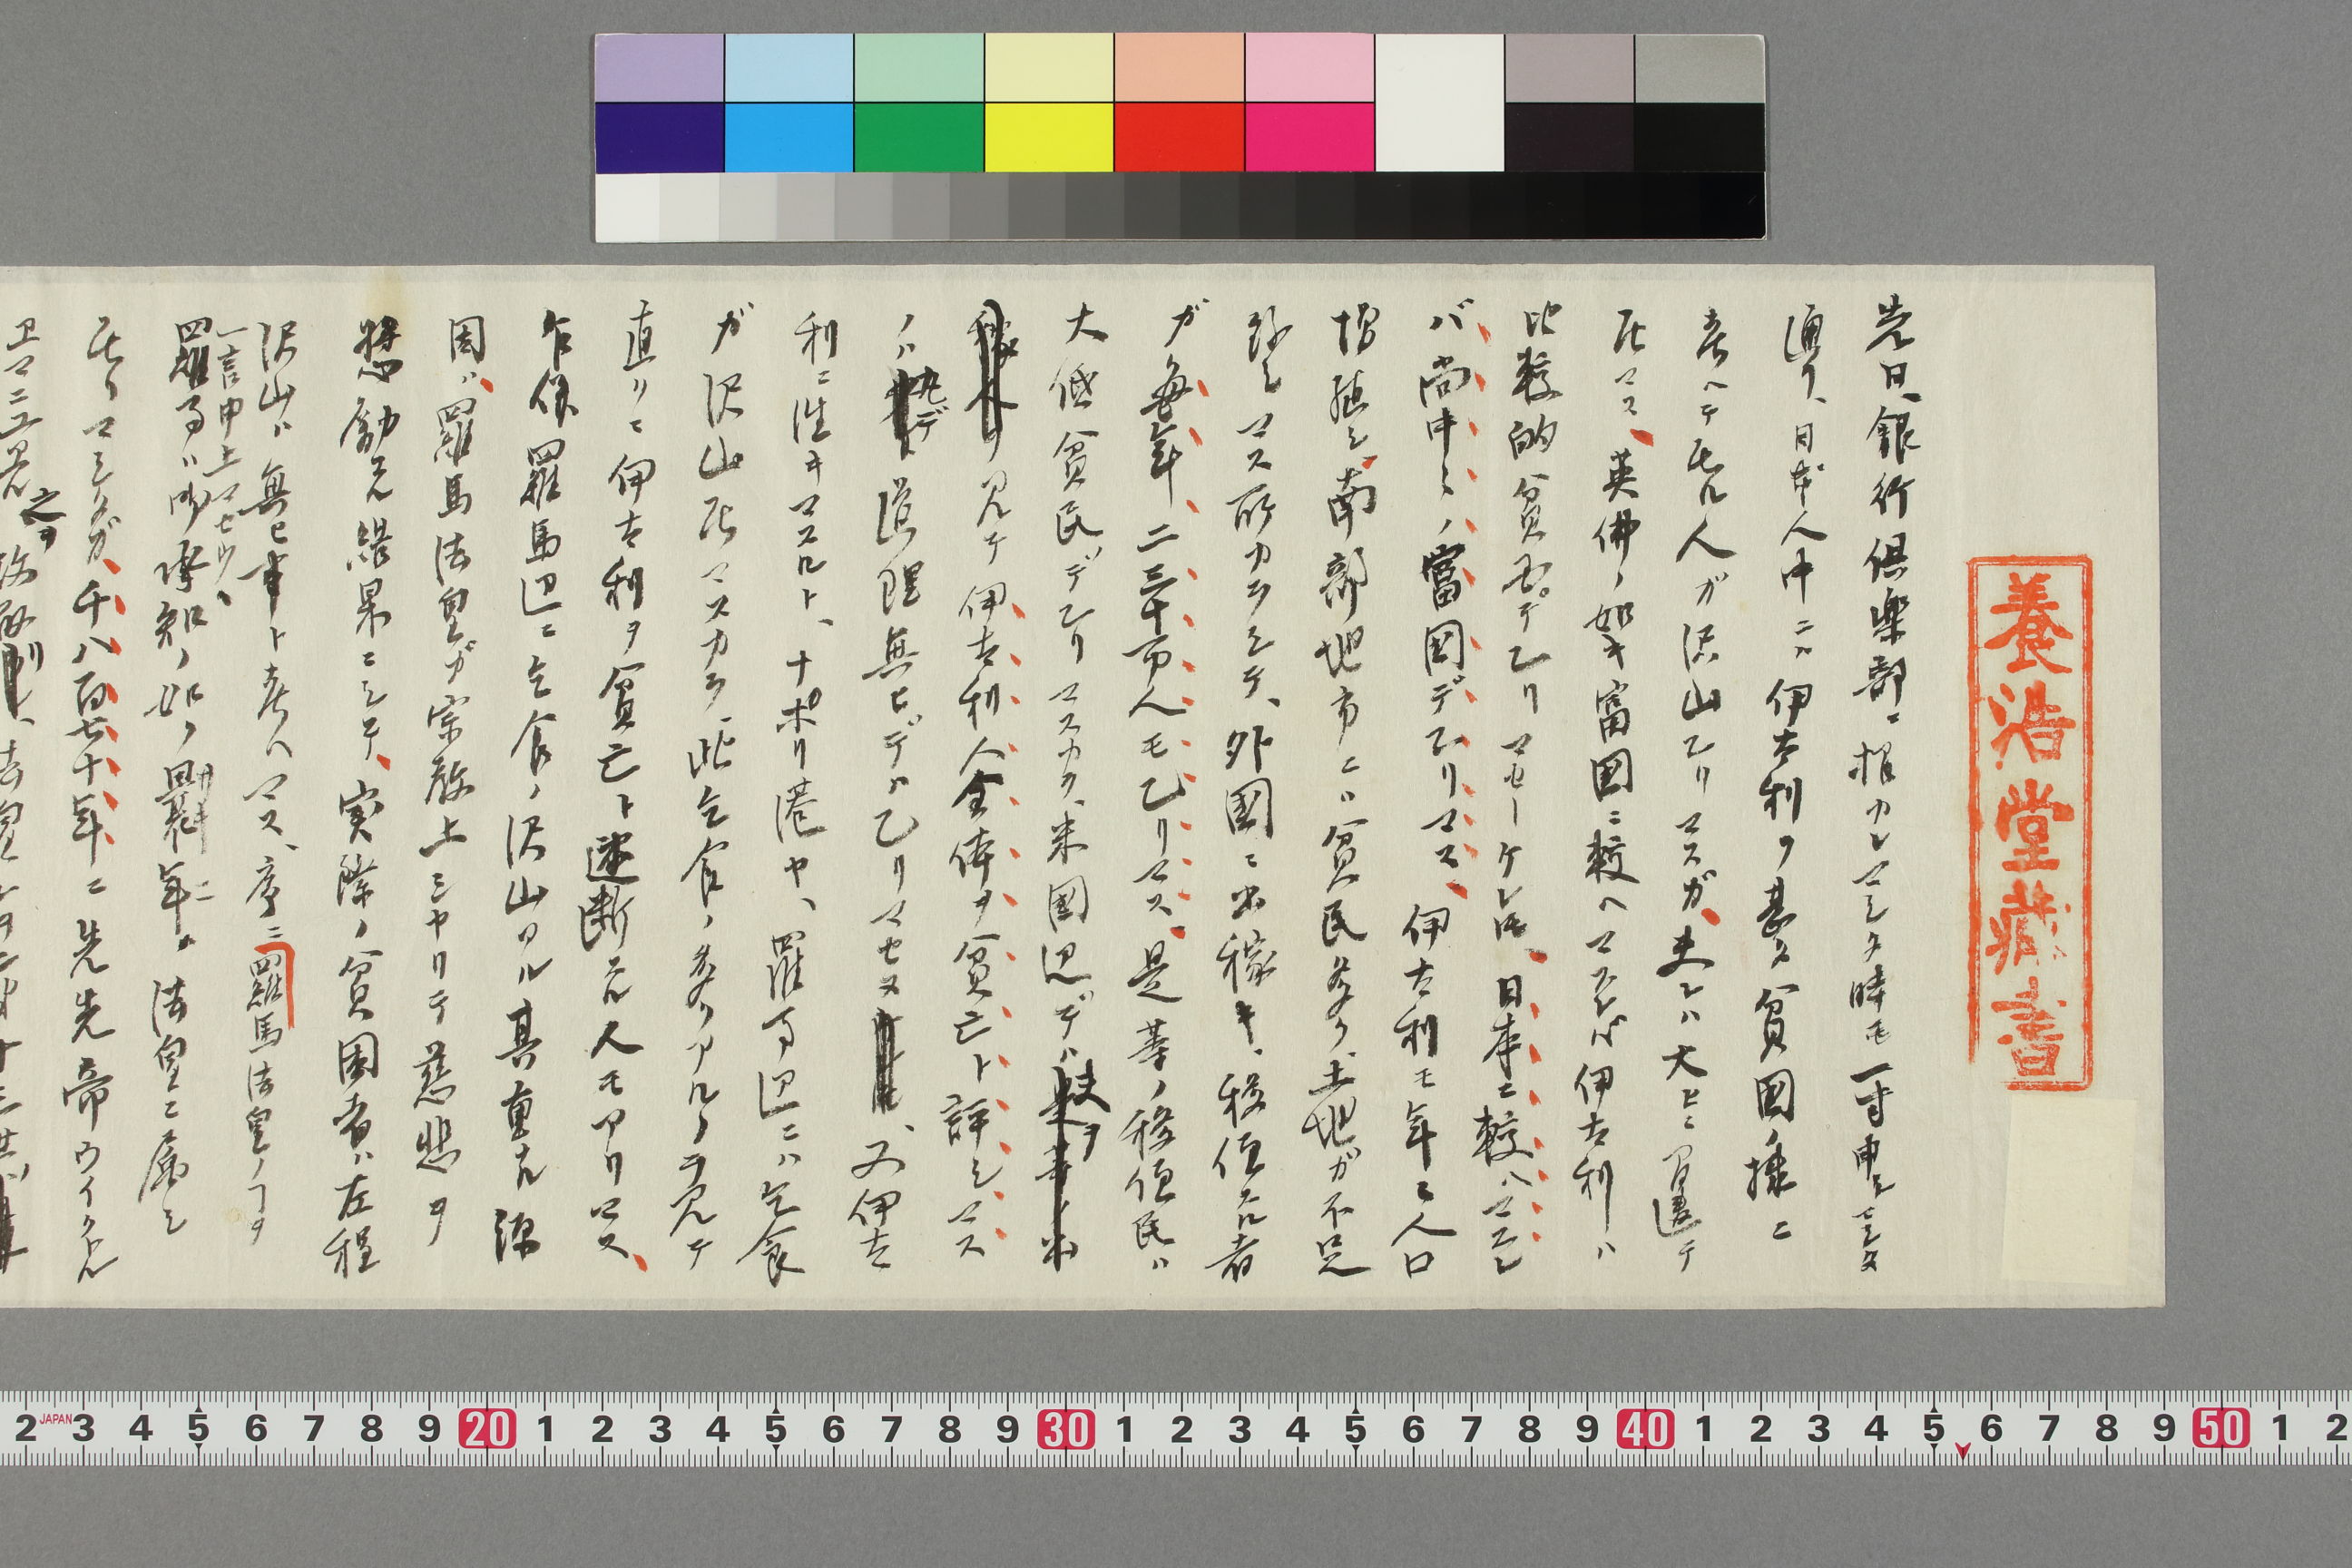 養浩堂藏書
先日、銀行倶楽部ニ招カレマシタ時モ一寸申シマシタ
通リ、日本人中ニハ伊太利ヲ甚タ貧國ノ様ニ
考ヘテ居ル人ガ沢山アリマスガ、夫レハ大ヒニ間違テ
居マス、英佛ノ如キ富國ニ較ヘマスレバ伊太利ハ
比較的貧乏デアリマセーケレ𪜈、日本ニ較ヘマスレ
バ尚中々ノ富国デアリマス、伊太利モ年々人口
増殖シ、南部地方ニハ貧民多ク、土地ガ不足
致シマス所カラシテ、外國ニ出稼キ、移住スル者
ガ毎年二三十万人モアリマス、是等ノ移住民ハ
大低貧民デアリマスカラ、米國辺デハ夫ヲ
見テ伊太利人全体ヲ貧亡ト評シマス
ノハ 道理無ヒデハアリマセヌ 、又伊太
利ニ往キマスルト、ナポリ港ヤ、羅馬辺ニハ乞食
ガ沢山居マスカラ、此乞食ノ多クアルノヲ見テ
直リニ伊太利ヲ貧亡ト速断スル人モアリマス、
乍併羅馬辺ニ乞食ノ沢山アル其重ナル源
因ハ、羅馬法皇ガ宗教上ミヤリテ慈悲ヲ
奨励スル結果ニシテ、実際ノ貧困者ハ左程
沢山ハ無ヒ事ト考ヘマス、序ニ羅馬法皇ノヿヲ
一言申上マセウ、
羅馬ハ御承知ノ如ク 年 法皇ニ属シ
居リマシタガ、千八百七十年ニ先先帝ウイクトル
ヱマニユヱル之ヲ